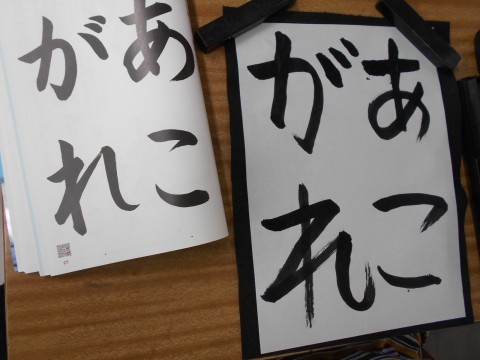 あこ
がれ
あこ
がれ